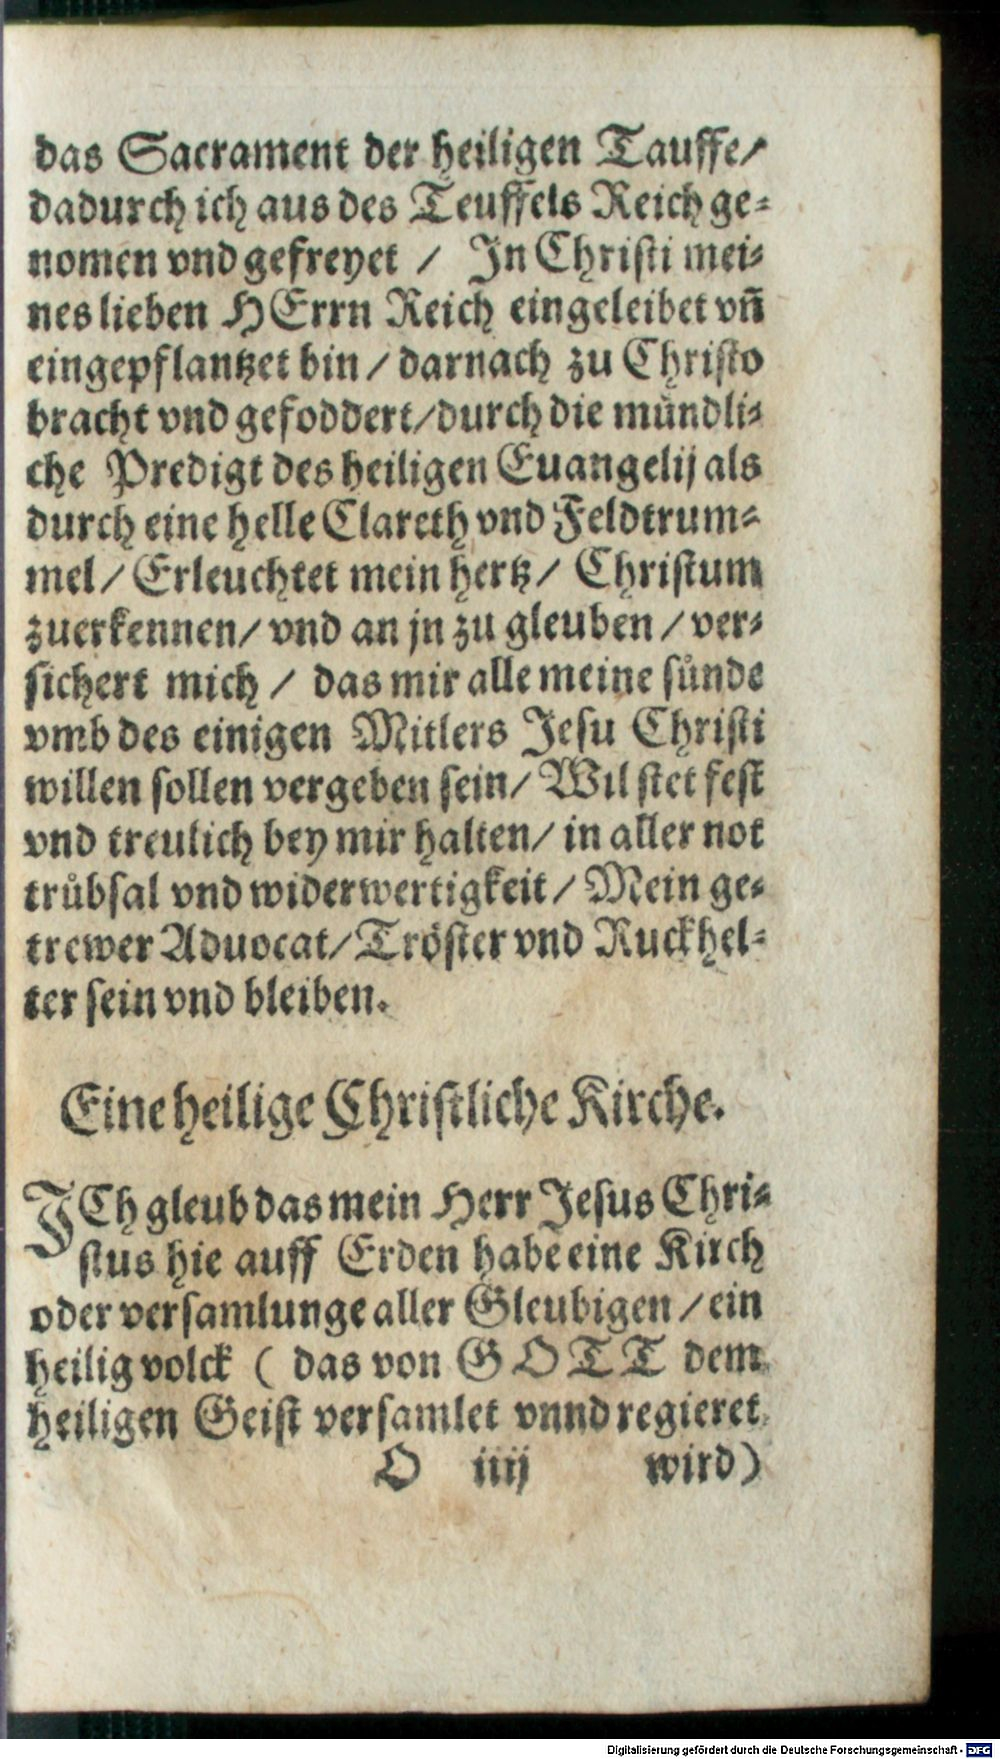 das Sacrament der heiligen Tauffe/
dadurch ich aus des Teuffels Reich ge-
nomen vnd gefreyet / In Christi mei-
nes lieben HErrn Reich eingeleibet vn̄
eingepflantzet bin / darnach zu Christo
bracht vnd gefoddert/durch die mündli-
che Predigt des heiligen Euangelij als
durch eine helle Clareth vnd Feldtrum-
mel / Erleuchtet mein hertz / Christum
zuerkennen/ vnd an jn zu gleuben / ver-
sichert mich / das mir alle meine sünde
vmb des einigen Mitlers Jesu Christi
willen sollen vergeben sein/ Wil stet fest
vnd treulich bey mir halten/ in aller not
trübsal vnd widerwertigkeit / Mein ge-
trewer Aduocat/ Tröster vnd Ruckhel-
ter sein vnd bleiben.
Eine heilige Christliche Kirche.
ICh gleub das mein Herr Jesus Chri-
stus hie auff Erden habe eine Kirch
oder versamlunge aller Gleubigen / ein
heilig volck ( das von GOTT dem
heiligen Geist versamlet vnnd regieret
O iiij wird)
Digitalisierung gefördert durch die Deutsche Forschungsgemeinschaft - DFG